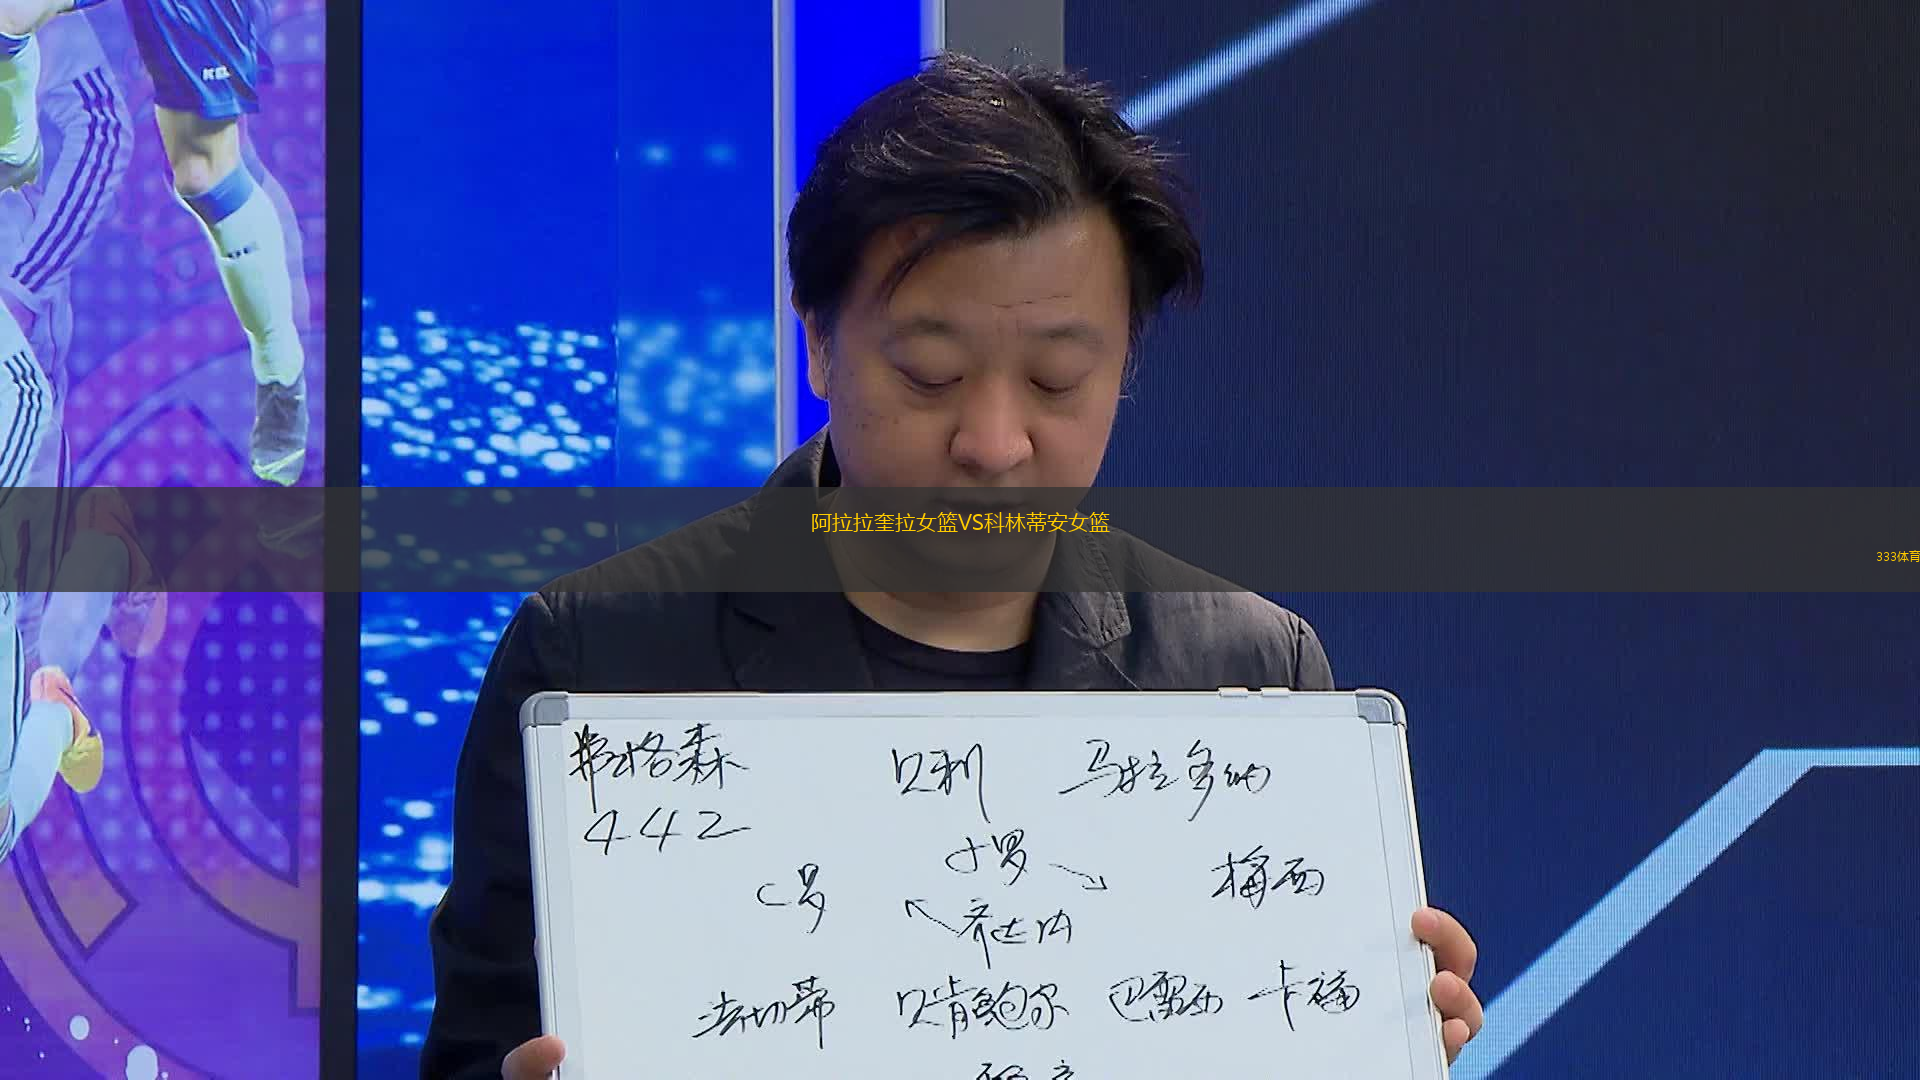 KEL
阿拉拉奎拉女篮VS科林蒂安女篮
333体育
弗格森 贝利 马拉多纳
442
小罗
C罗 梅西
齐达内
法切蒂 贝肯鲍尔 巴雷西 卡福